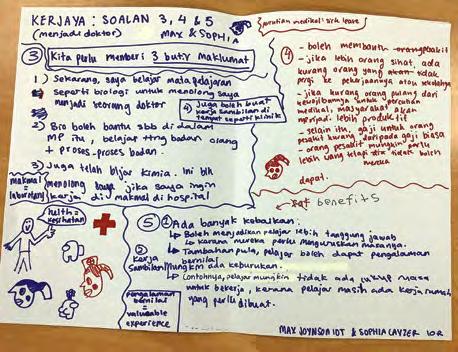 KERJAYA: SOALAN 3, 4 & 5
(menjadi doktor) MAX & SOPHIA
3 Kita perlu memberi 3 butir maklumat
1) Sekarang, saya belajar mata pelajaran
seperti biologi untuk menolong saya
menjadi seorang doktor
2) Bio boleh bantu sbb di dalam
MP itu, belajar ttng badan orang
+ proses-proses badan.
3) Juga telah bljar kimia. Ini blh
menolong saya jika saya ingin
kerja di makmal di hospital
makmal =
laboratory
4) Juga boleh buat
kerja sambilan di
tempat seperti klinik
cutian medikal: sick leave
4
- boleh membantu
- jika lebih orang sihat, ada
kurang orang yang akan tidak
pergi ke pekerjaannya atau
- jika kurang orang pulang dari
untuk
medikal, masyarakat akan
menjadi lebih produktif
- selain itu, gaji untuk orang
pesakit kurang daripada gaji biasa
- orang pesakit mungkin perlu
lebih wang tetapi tidak boleh
mereka
dapat.
benefits
health =
kesihatan
5 1) Ada banyak kebaikan:
Boleh menjadikan pelajar lebih tanggung jawab
kerana mereka perlu menguruskan masanya.
Tambahan pula, pelajar boleh dapat pengalaman
bernilai
2) Kerja
sambilan mungkin ada keburukan.
Contohnya, pelajar mungkin tidak ada cukup masa
untuk bekerja, kerana pelajar masih ada kerja rumah
yang perlu dibuat.
pengalaman
bernilai =
valuable
experience
MAX JOYNSON 10T & SOPHIA CAYZER 10R